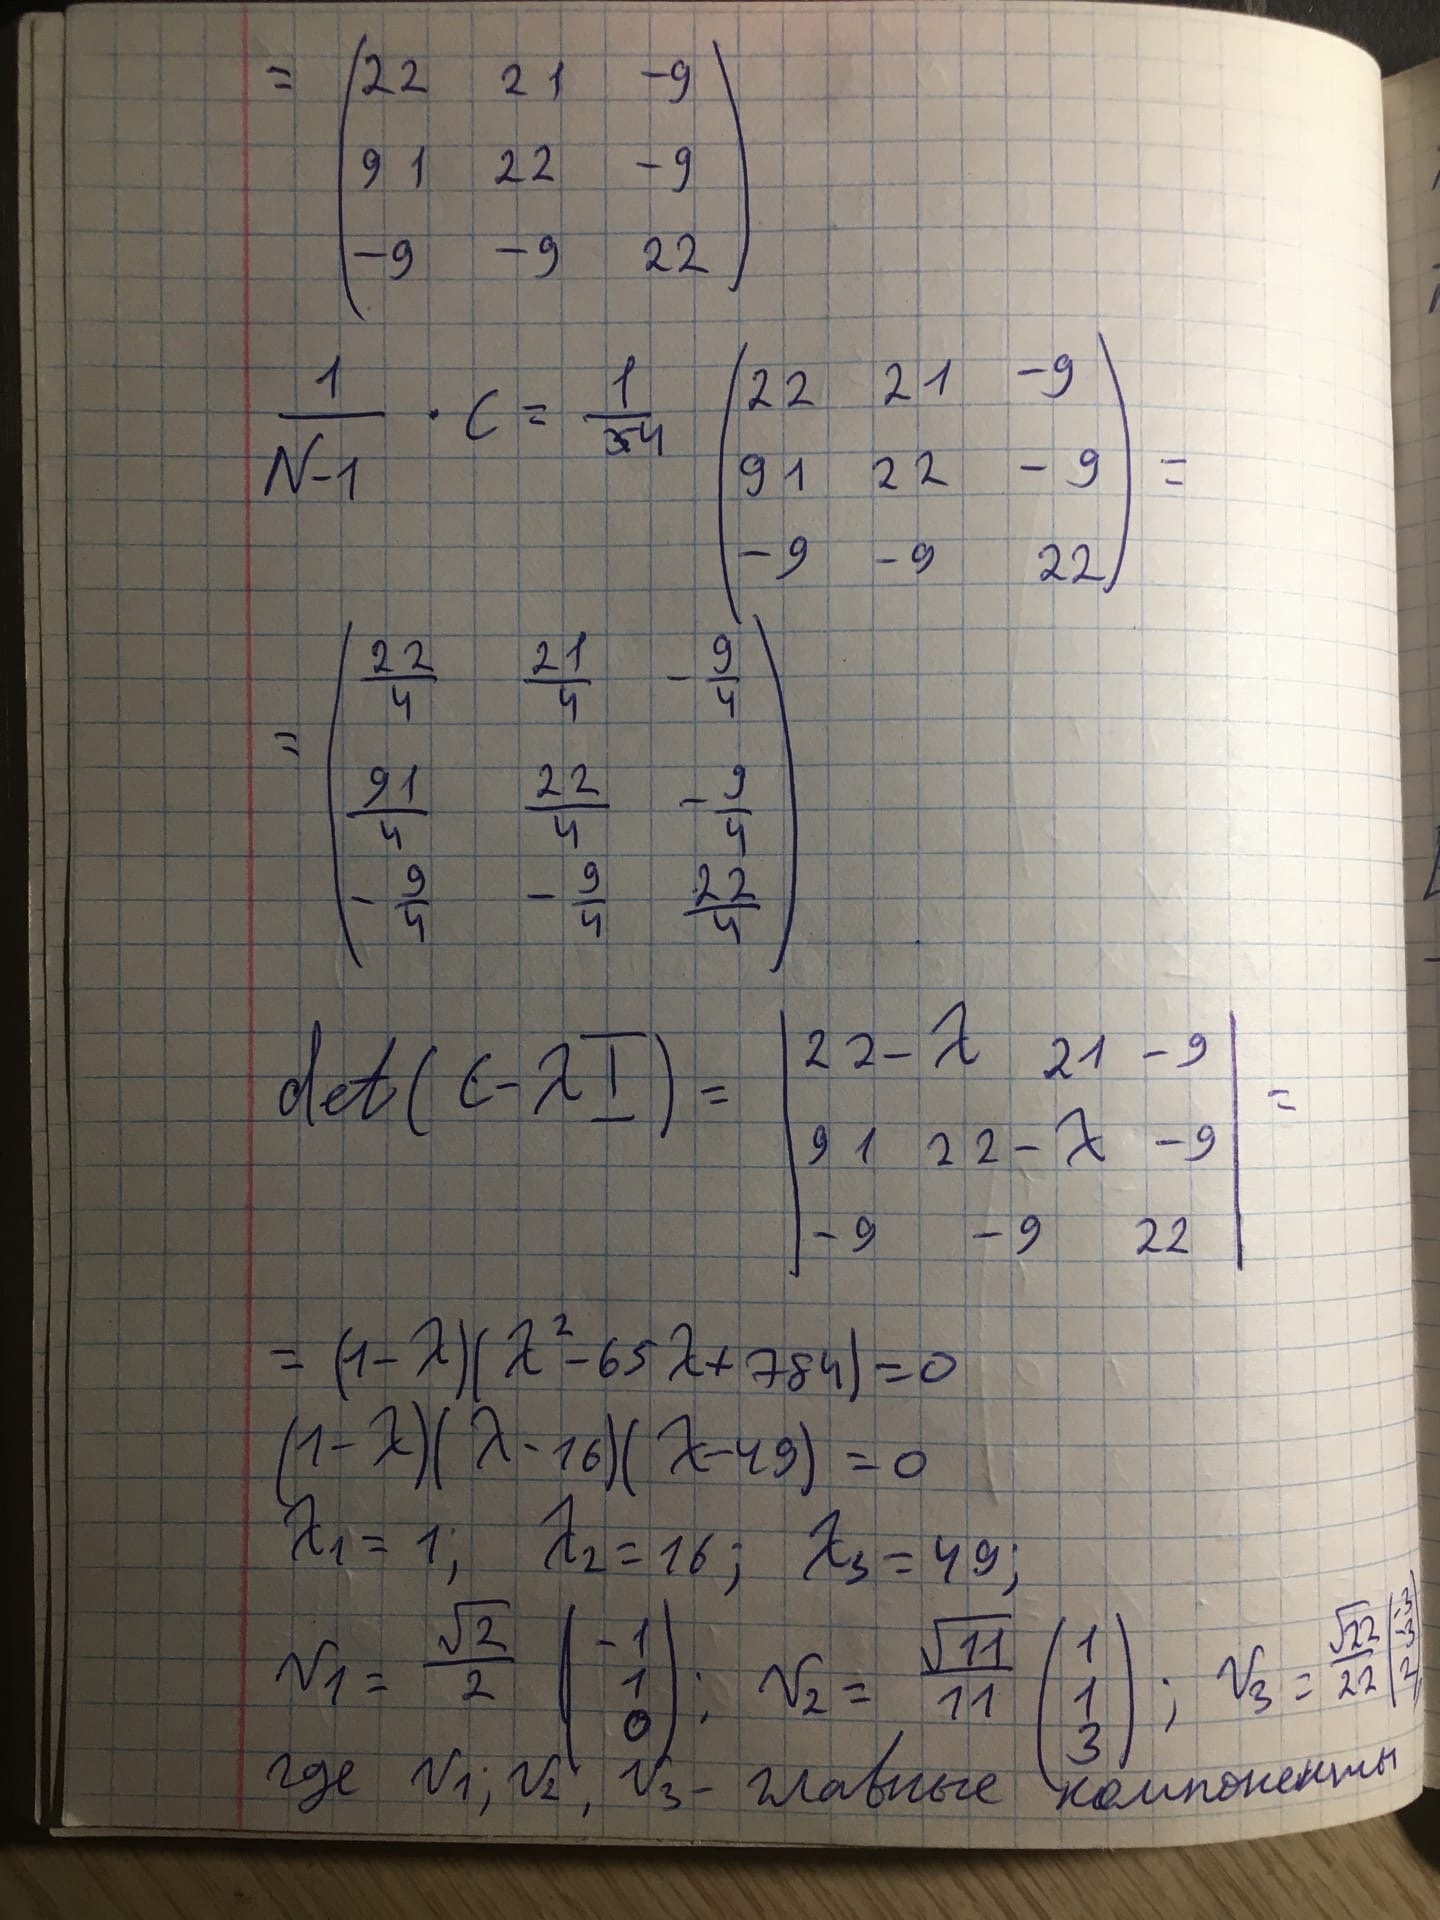 = (22 21 -9
91 22 -9
-9 -9 22)
1/(N-1) · C = 1/4 (22 21 -9
91 22 -9
-9 -9 22) =
= (22/4 21/4 -9/4
91/4 22/4 -9/4
-9/4 -9/4 22/4)
det(C-λI) = |22-λ 21 -9
91 22-λ -9
-9 -9 22| =
= (1-λ)(λ²-65λ+784)=0
(1-λ)(λ-16)(λ-49)=0
λ1=1; λ2=16; λ3=49;
v1 = √2/2 (-1 1 0); v2 = √11/11 (1 1 3); v3 = √22/22 (-3 -3 2)
где v1; v2, v3 - главные компоненты